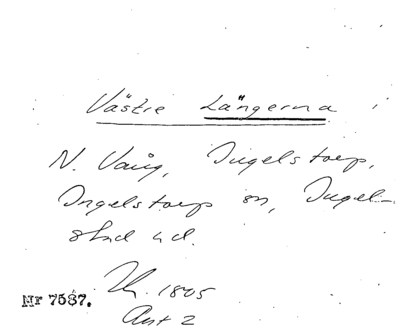 Västre Längerna
N. Vång, Ingelstorp,
Ingelstorp sn, Ingel-
stad hd.
1805
Akt 2
Nr 7587.